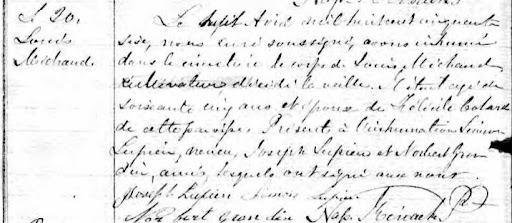 S 20.
Louis
Michaud.
Le sept Avril mil huit cent cinquante
six, nous curé soussigné, avons inhumé
dans le cimetière le corps de Louis Michaud
cultivateur décédé la veille. Il était agé de
soixante cinq ans et épouse de Félicité Colard
de cette paroisse. Présents à l'inhumation Simon
Lupien, neveu, Joseph Lupien et Norbert Gron
din, amis, lesquels ont signé avec nous.
Joseph Lupien Simon Lupien
Norbert Grondin Nap.